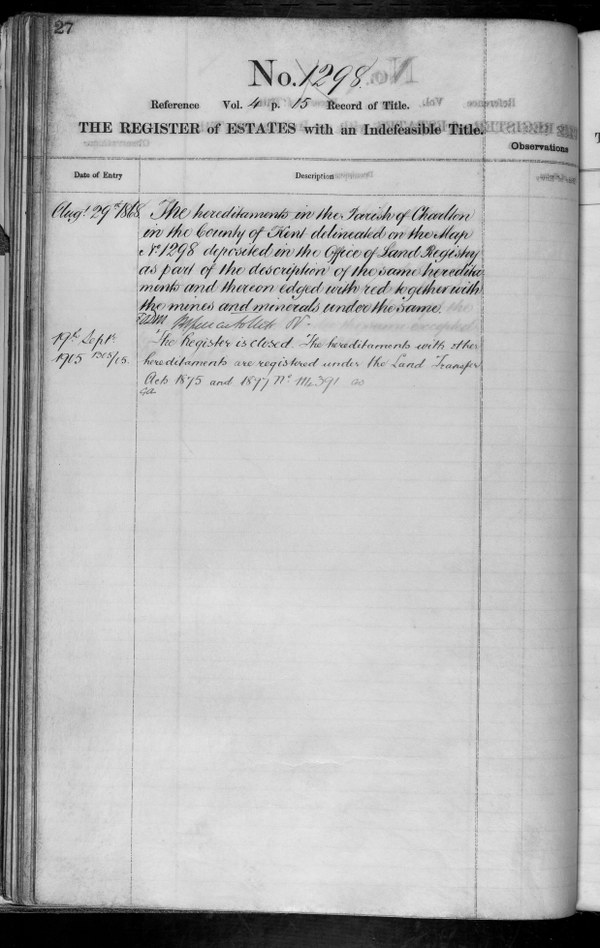 27
No. 1298.
Reference Vol. 4 p. 15 Record of Title.
THE REGISTER of ESTATES with an Indefeasible Title.
Observations
Date of Entry
Description
Augt. 29th 1868
The hereditaments in the Parish of Charlton
in the County of Kent delineated on the Map
No. 1298 deposited in the Office of Land Registry
as part of the description of the same heredita
ments and thereon edged with red together with
the mines and minerals under the same.
19th Sept.
The Register is closed. The hereditaments with other
1915
hereditaments are registered under the Land Transfer
Acts 1875 and 1897 No.